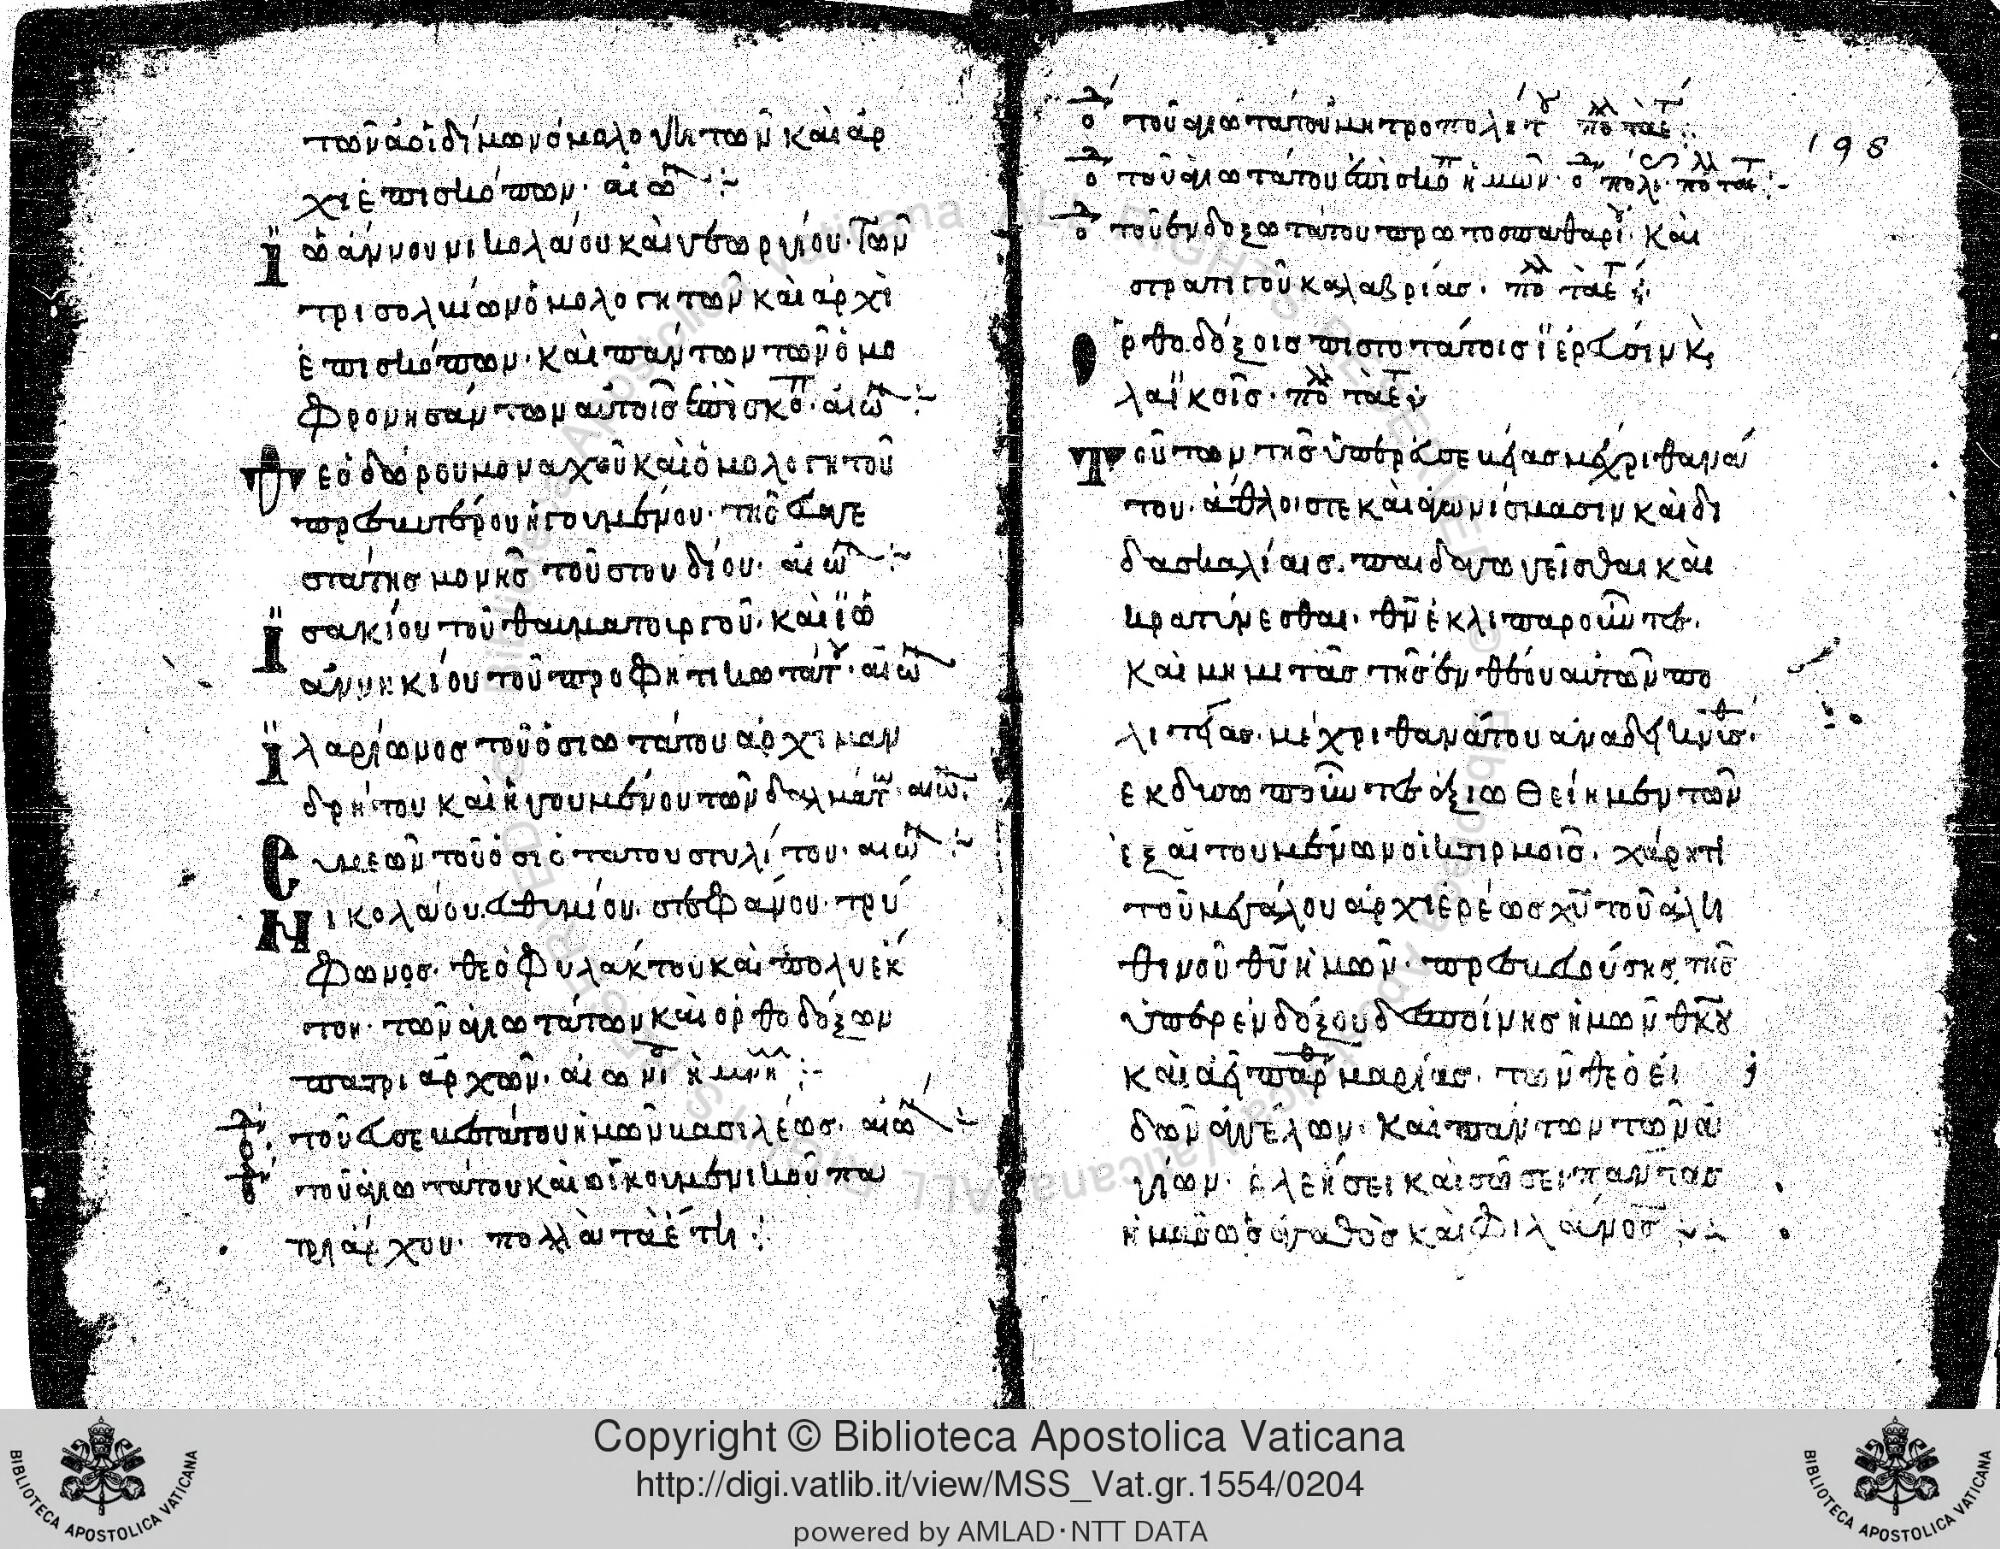 τῶν ἀοϊδήμων ὁμολογητῶν καὶ ἀρ
χιεπισκόπων· αἰω
Ϊωάννου νικολάου καὶ γεωργίου· τῶν
τρισολκιων ὁμολογητῶν καὶ ἀρχι
επισκόπων· καὶ πάντων τῶν ὁμο
φρονησάντων αὐτοῖς ἐπισκο· αἰω
Θεοδώρου μοναχοῦ καὶ ὁμολογητοῦ
πρεσβυτέρου ἡγουμένου· τῆς εὐαγε
στάτης μονῆς τοῦ στουδίου· αἰω
Ϊσακίου τοῦ θαυματουργοῦ· καὶ ϊω
αννηκίου τοῦ προφητικωτάτ· αἰω
Ϊλαρίωνος τοῦ ὁσιωτάτου ἀρχιμαν
δρήτου καὶ ἡγουμένου τῶν δαλμάτ· αἰω
Συμεὼν τοῦ ὁσιοτάτου στυλίτου· αἰω
Νικολάου· εὐθυμίου· στεφάνου· τρύ
φωνος· θεοφυλάκτου καὶ πολυεύ
του· τῶν ἁγιωτάτων καὶ ορθοδόξων
πατριαρχῶν· αἰωνι ἡ μνη
τοῦ εὐσεβεστάτου ἡμῶν βασιλέως· αἰω
τοῦ ἁγιωτάτου καὶ οἰκουμενικοῦ πα
τριάρχου· πολλὰ τὰ ἔτη
τοῦ ἁγιωτάτου μητροπολίτ πο τὰ ε
τοῦ ἁγιωτάτου ἐπισκο ἡμῶν· πόλι· πο τὰ ε
τοῦ ἐνδοξωτάτου πρωτοσπαθαρι· καὶ
στρατιγοῦ καλαβρίας· πο τὰ ε
Ορθοδόξοις πιστοτάτοις ϊερεῦσιν κ
λαϊκοῖς· πο τὰ ε
Τούτων τῆς ὑπὲρ εὐσεβείας μέχρι θανά
του· ἄθλοις τε καὶ ἀγωνίσμασιν καὶ δι
δασκαλίαις· παιδαγωγεῖσθαι καὶ
κρατύνεσθαι· θν ἐκλιπαροῦντες·
καὶ μημιτὰς τῆς ἐνθέου αὐτῶν πο
λιτείας· μέχρι θανάτου ἀναδείκνυσθ·
εκδυσωποῦντες ἀξιωθείημεν τῶν
ἐξαιτουμένων οἰκτιρμοῖς· χάριτι
τοῦ μεγάλου ἀρχιερέως χυ τοῦ ἀλη
θινοῦ θυ ἡμῶν· πρεσβευούσης τῆς
ὑπερενδόξου δεσποίνης ἡμῶν θκου
καὶ ἀει παρθ μαρίας· τῶν θεοει
δῶν ἀγγέλων· καὶ πάντων τῶν ἁ
γίων· ἐλεήσει καὶ σώσει πάντας
ἡμᾶς ὡς ἀγαθὸς καὶ φιλάνος
198
Copyright © Biblioteca Apostolica Vaticana
http://digi.vatlib.it/view/MSS_Vat.gr.1554/0204
powered by AMLAD·NTT DATA
BIBLIOTECA APOSTOLICA VATICANA
BIBLIOTECA APOSTOLICA VATICANA